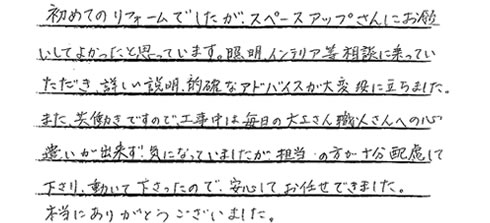 初めてのリフォームでしたが、スペースアップさんにお願
いしてよかったと思っています。照明、インテリア等相談に乗ってい
ただき、詳しい説明、的確なアドバイスが大変役に立ちました。
また、共働きですので、工事中は毎日の大工さん職人さんへの心
遣いが出来ず、気になっていましたが、担当の方が十分配慮して
下さり、動いて下さったので、安心してお任せできました。
本当にありがとうございました。